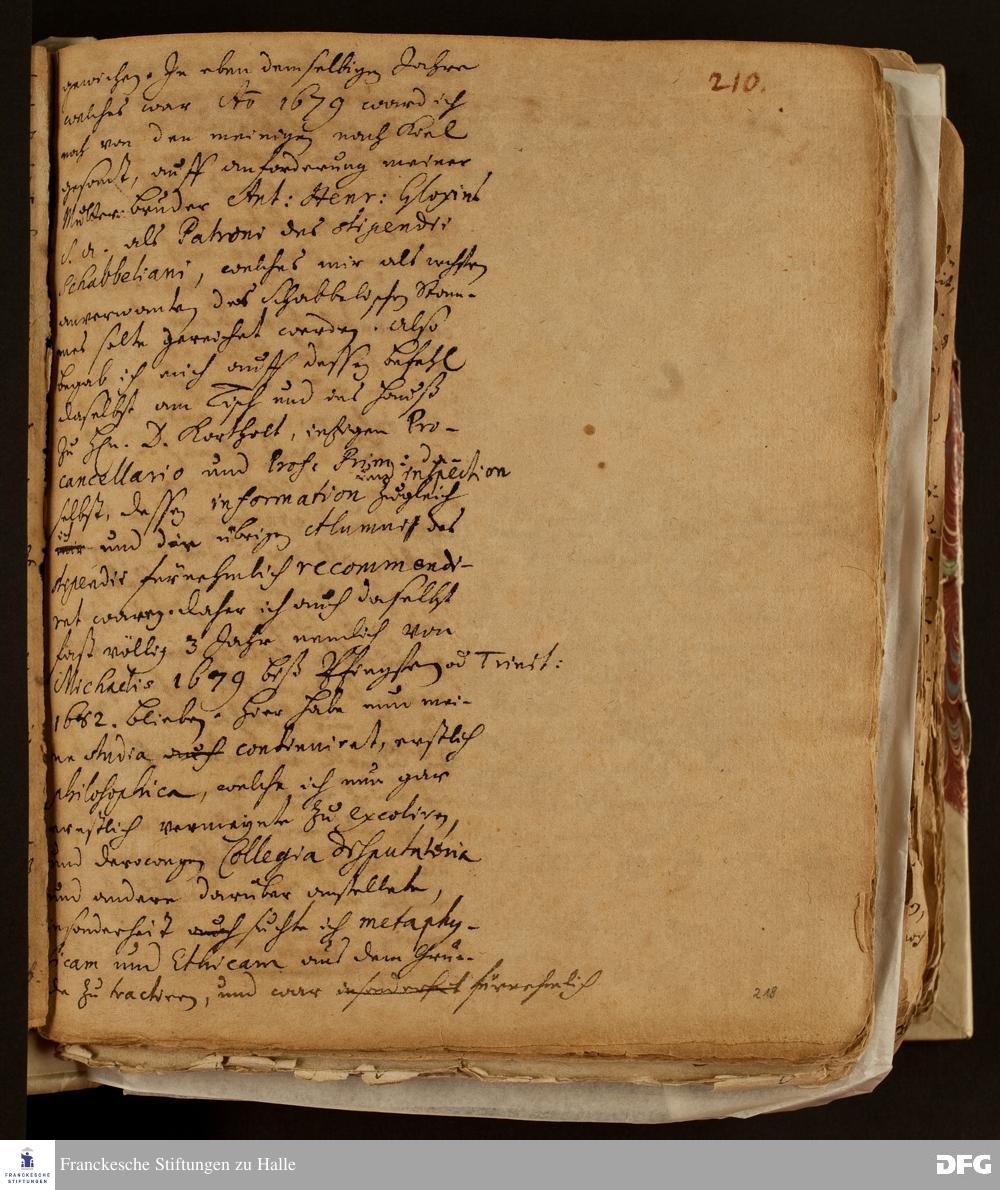 gewichen. In eben demselbigen Jahre
210.
welches war Ao 1679 ward ich
noch von den meinigen nach Kiel
gesandt, auff anforderung meiner
Mutter-bruder Ant: Henr: Gloxins
S. a. als Patroni des stipendii
Schabbeliani, welches mir als nechsten
anverwanten des Schabbelischen Stam-
mes solte gereichet werden. also
begab ich mich auff dessen befehl
daselbst am Tisch und ins hauß
zu Hn. D. Kortholt, itzigen Pro-
cancellario und Prof. Prim: da-
selbst, dessen information und inspection zugleich
ich mir und die übrigen Alumni des
stipendii fürnehmlich recommendi-
ret waren. daher ich auch daselbst
fast völlig 3 Jahr nemlich von
Michaelis 1679 biß Pfingsten od Trinit:
1682. blieben. Hier habe nun mei-
ne studia auch continuiret, erstlich
philosophica, welche ich nun gar
ernstlich vermeynte zu excoliren,
und deroweegen Collegia disputatoria
und andere darüber anstellete,
insonderheit auch suchte ich metaphy-
sicam und Ethicam aus dem Grun-
de zu tractiren, und war insonderheit fürnehmlich
218
Franckesche Stiftungen zu Halle
FRANCKESCHE
STIFTUNGEN
DFG